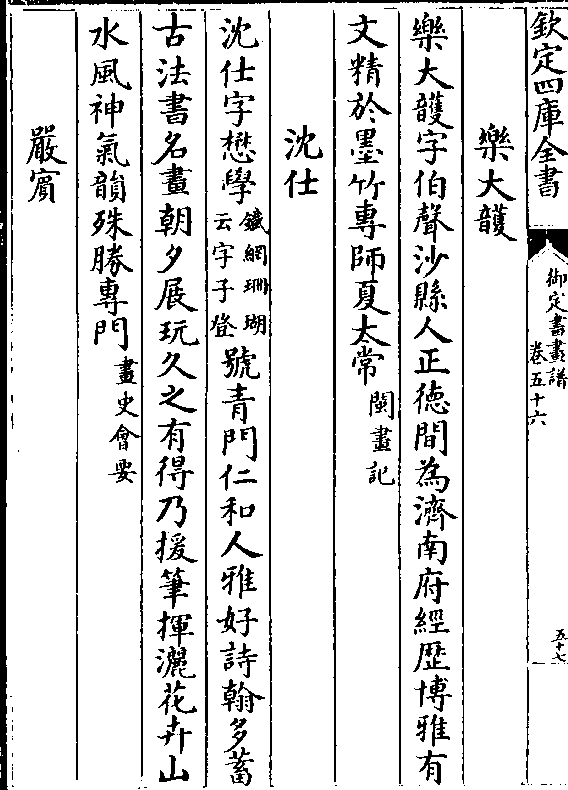 欽定四庫全書
御定書畫譜
卷五十六
五十七
樂大䕶
樂大䕶字伯聲沙縣人正徳間為濟南府經歴博雅有
文精於墨竹專師夏太常閩畫記
沈仕
沈仕字懋學鐵網珊瑚云字子登號青門仁和人雅好詩翰多蓄
古法書名畫朝夕展玩久之有得乃援筆揮灑花卉山
水風神氣韻殊勝專門畫史會要
嚴賔